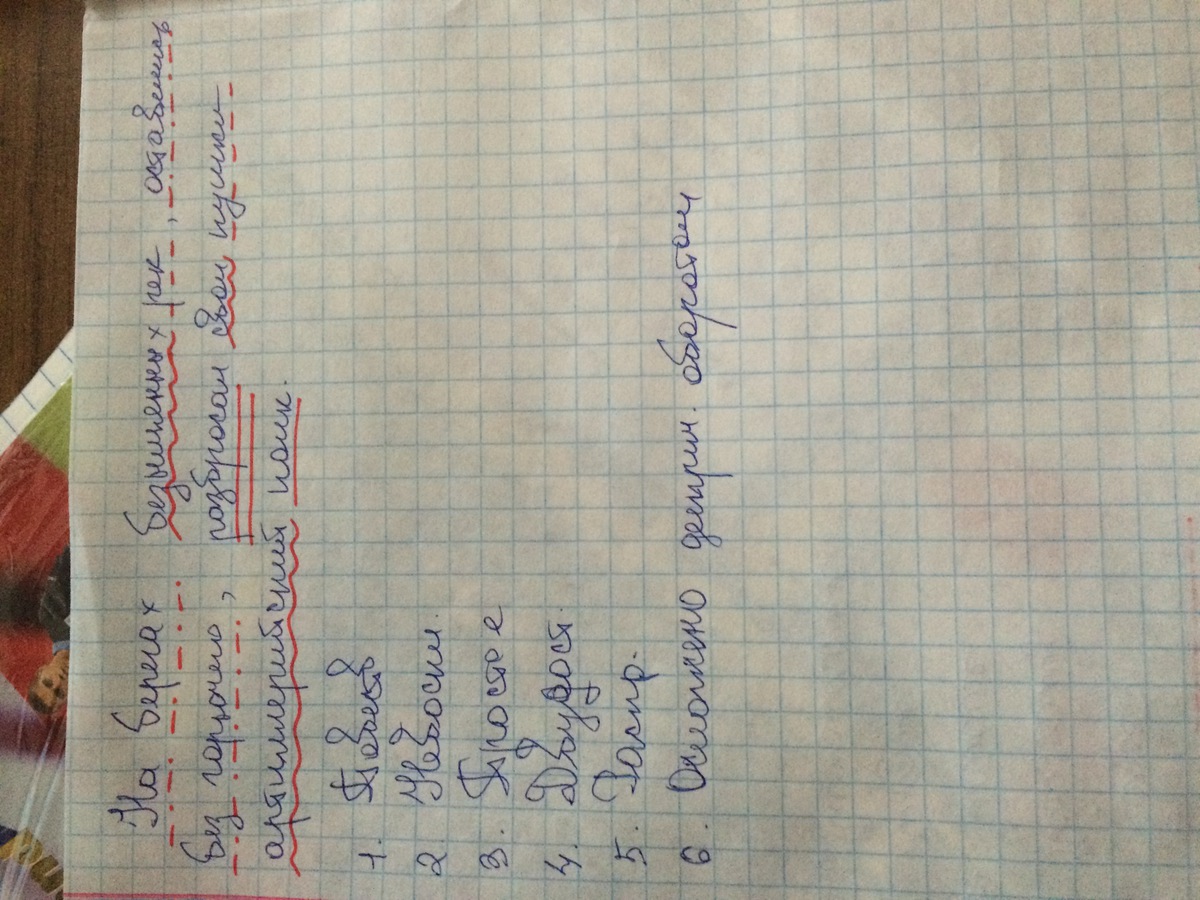 На берегах безымянных рек, оставшись
без горючего, разбросал свои пушки
артиллерийский полк.
1. Повеств
2. Невоскл.
3. Простое
4. Двусост.
5. Распр.
6. Осложнено дееприч. оборотом